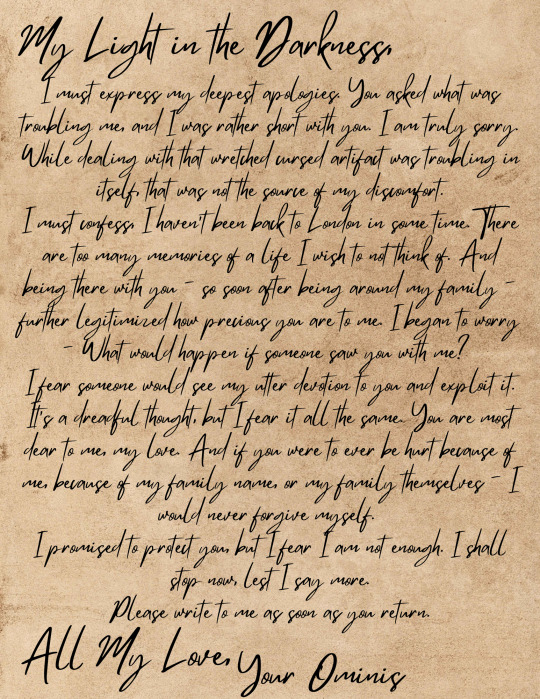 My Light in the Darkness,
I must express my deepest apologies. You asked what was
troubling me, and I was rather short with you. I am truly sorry.
While dealing with that wretched cursed artifact was troubling in
itself, that was not the source of my discomfort.
I must confess, I haven't been back to London in some time. There
are too many memories of a life I wish to not think of. And
being there with you - so soon after being around my family -
further legitimized how precious you are to me. I began to worry
- What would happen if someone saw you with me?
I fear someone would see my utter devotion to you and exploit it.
It's a dreadful thought, but I fear it all the same. You are most
dear to me, my love. And if you were to ever be hurt because of
me, because of my family name, or my family themselves - I
would never forgive myself.
I promised to protect you, but I fear I am not enough. I shall
stop now, lest I say more.
Please write to me as soon as you return.
All My Love, Your Ominis